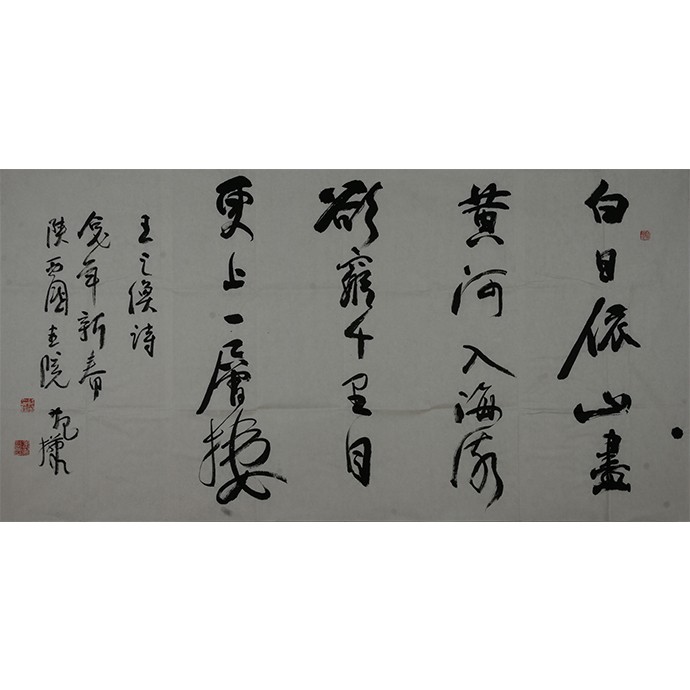 白日依山盡
黄河入海流
欲窮千里目
更上一層樓
王之渙詩
年新春
陕西國画院